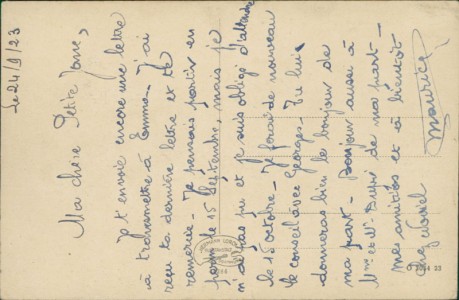 Le 24/9/23
Ma chère Petite
Je t'envoie encore une lettre
à transmettre à Emma - J'ai
reçu ta dernière lettre et te
remercie - Je pensais partir en
perm le 15 septembre, mais je
n'ai pas pu et je suis obligé d'attendre
le 15 octobre - Je ferai de nouveau
le conseil avec Georges - Tu lui
donneras bien le bonjour de
ma part - Bonjour aussi à
Mme et Mr de ma part -
mes amitiés et à bientôt
chez
Maurice